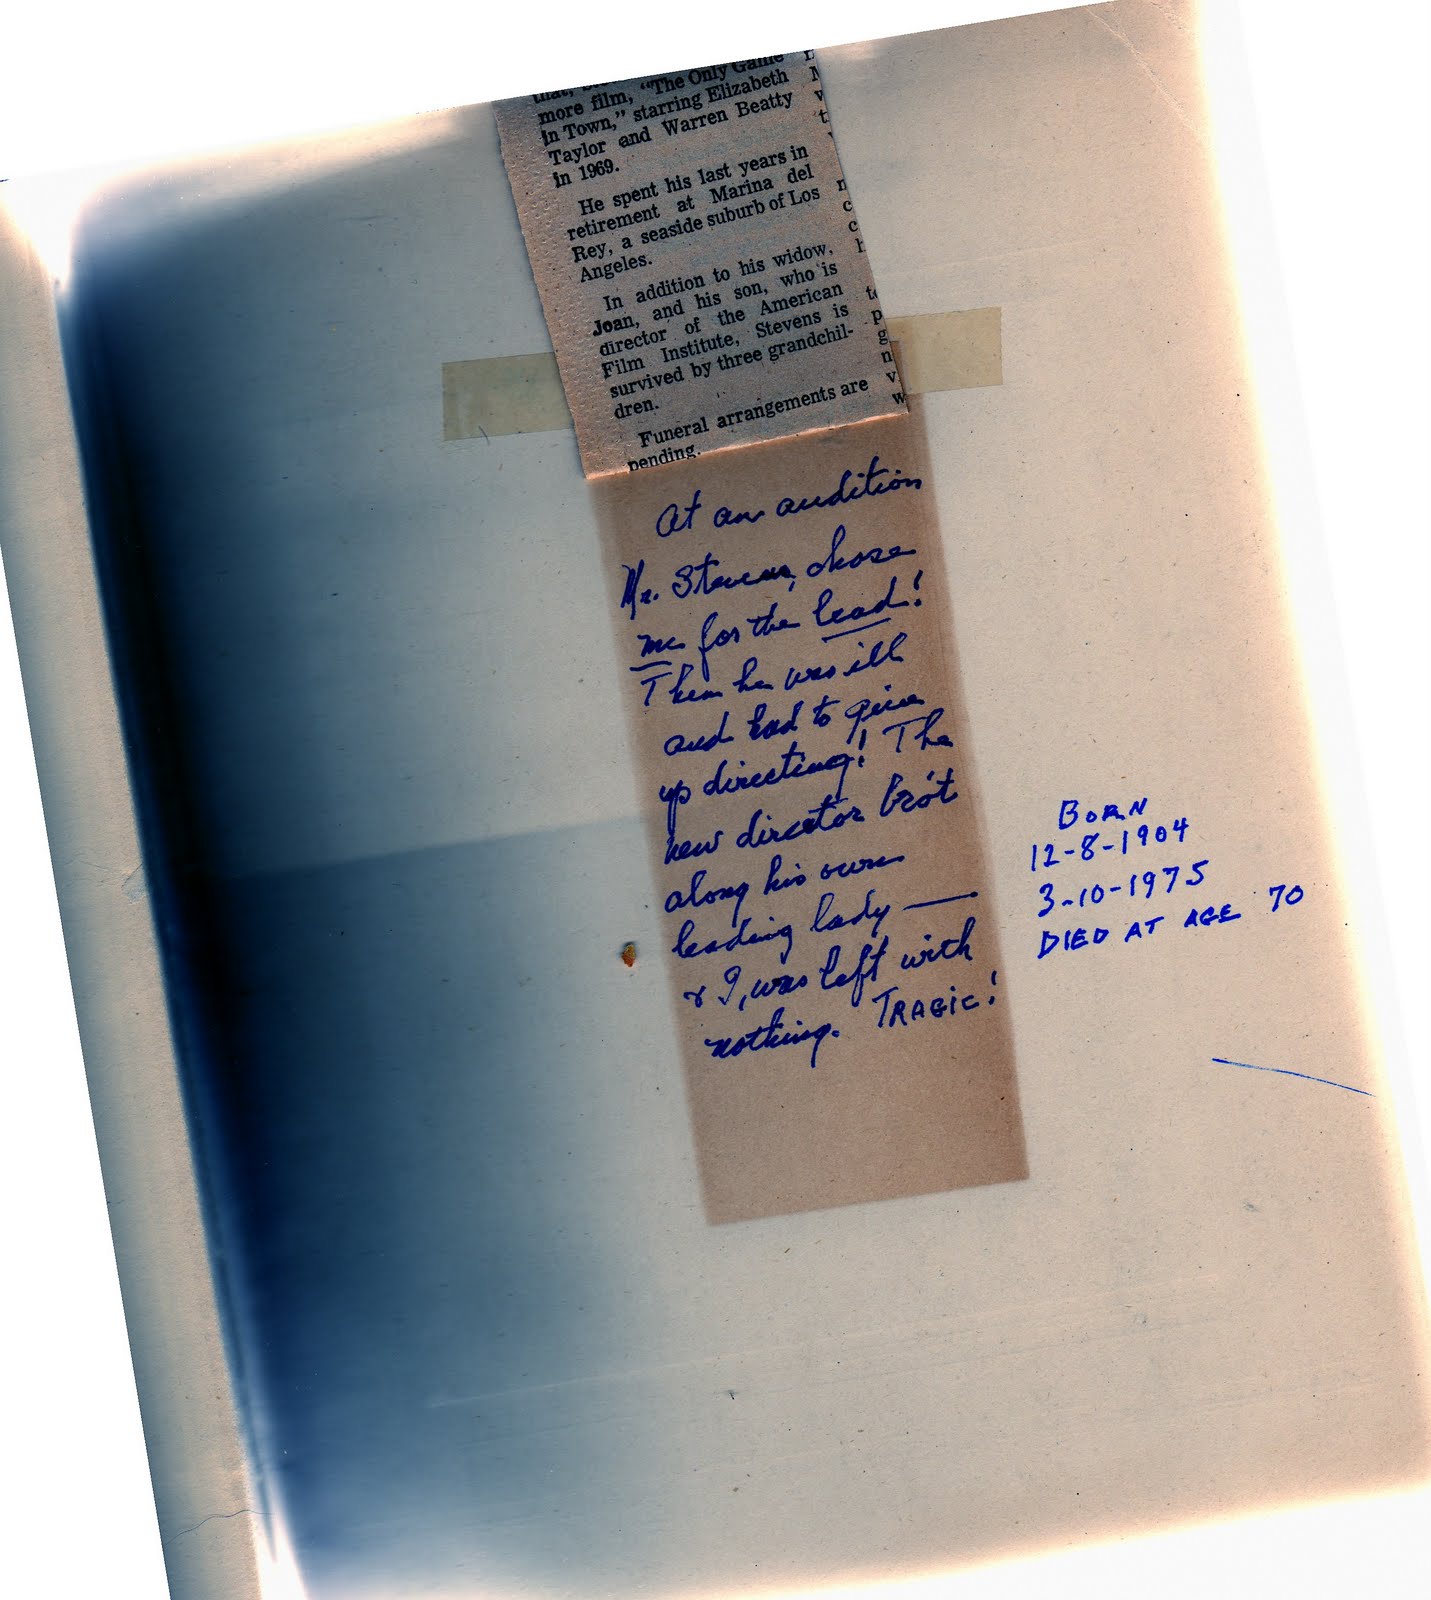 more film, "The Only Game
in Town," starring Elizabeth
Taylor and Warren Beatty
in 1969.
He spent his last years in
retirement at Marina del
Rey, a seaside suburb of Los
Angeles.
In addition to his widow,
Joan, and his son, who is
director of the American
Film Institute, Stevens is
survived by three grandchil-
dren.
Funeral arrangements are
pending.
At an audition
Mr. Stevens, chose
me for the lead!
Then he was ill
and had to give
up directing! The
new director bro't
along his own
leading lady —
& I, was left with
nothing. TRAGIC!
BORN
12-8-1904
3-10-1975
DIED AT AGE 70